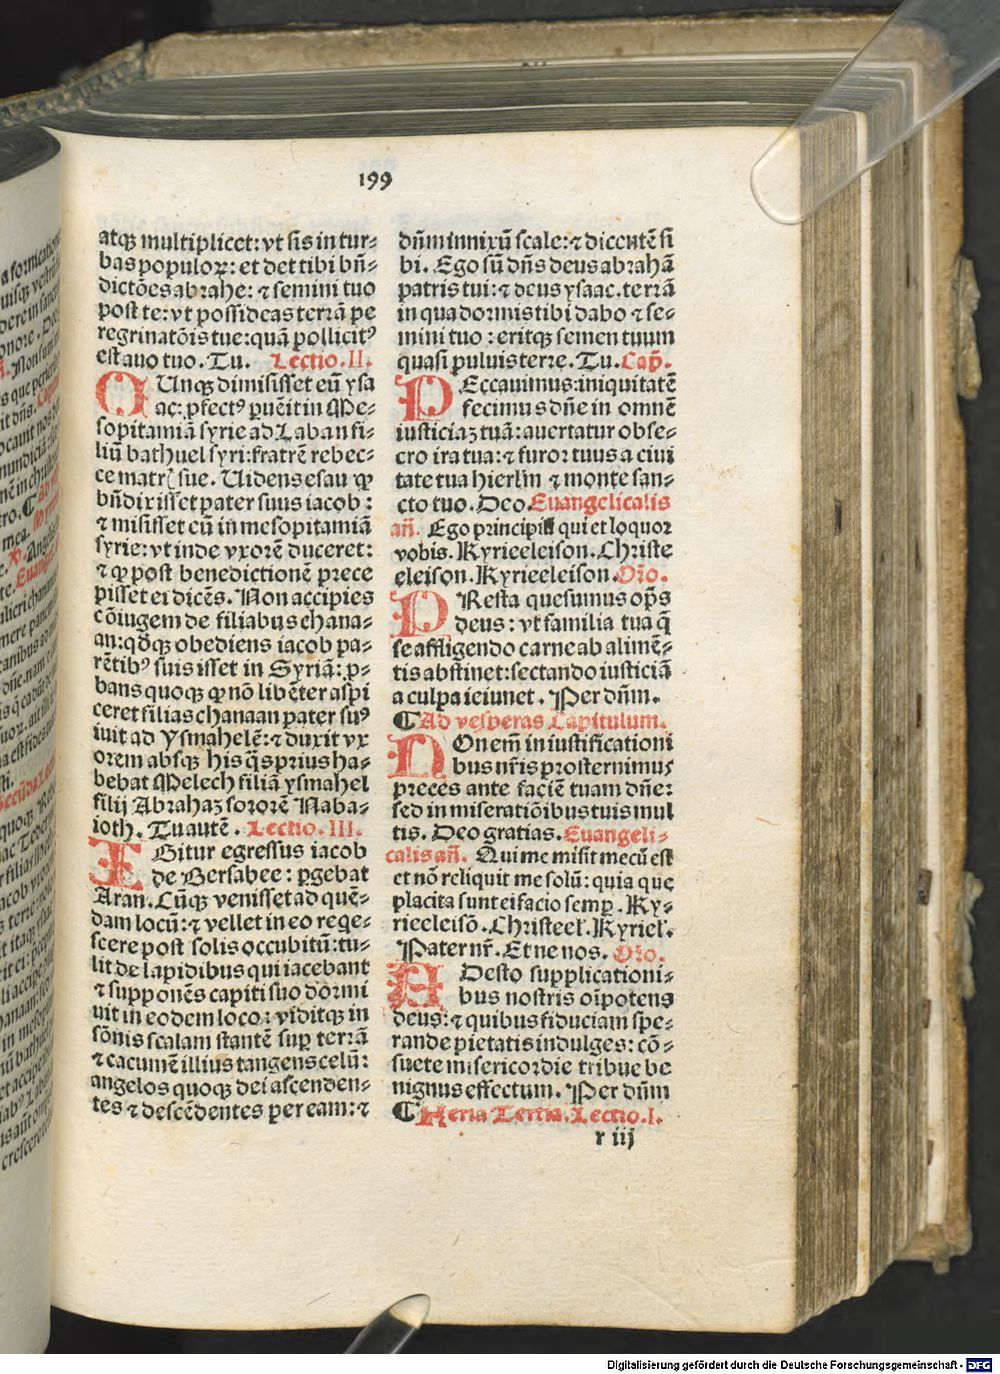 199
atqȝ multiplicet: vt sis in tur⸗
bas populoꝝ: et det tibi bñ⸗
dictões abrahe: ⁊ semini tuo
post te: vt possideas terrã pe
regrinatõis tue: quã pollicitꝰ
est auo tuo. Tu. Lectio. II.
CUnqȝ dimisisset eũ ysa
ac: ꝓfectꝰ puẽit in Me⸗
sopitamiã syrie ad Laban fi⸗
liũ bathuel syri: fratrẽ rebec⸗
ce matrꝭ sue. Uidens esau ꝙ
bñdixisset pater suus iacob:
⁊ misisset eũ in mesopitamiã
syrie: vt inde vxorẽ duceret:
⁊ ꝙ post benedictionẽ prece
pisset ei dicẽs. Non accipies
cõiugem de filiabus chana⸗
an: qðqȝ obediens iacob pa⸗
rẽtibꝰ suis isset in Syriã: ꝓ⸗
bans quoqȝ ꝙ nõ libẽter aspi
ceret filias chanaan pater suꝰ
iuit ad Ysmahelẽ: ⁊ duxit vx
orem absqȝ his q̃s prius ha⸗
bebat Melech filiã ysmahel
filij Abrahaȝ sororẽ Naba⸗
ioth. Tu autẽ. Lectio. III.
IGitur egressus iacob
de Bersabee: ꝑgebat
Aran. Cũqȝ venisset ad quẽ⸗
dam locũ: ⁊ vellet in eo reqe⸗
scere post solis occubitũ: tu⸗
lit de lapidibus qui iacebant
⁊ supponẽs capiti suo dormi
uit in eodem loco: viditqȝ in
sõnis scalam stantẽ suꝑ terrã
⁊ cacumẽ illius tangens celũ:
angelos quoqȝ dei ascenden⸗
tes ⁊ descẽdentes per eam: ⁊
dñm innixũ scale: ⁊ dicentẽ si
bi. Ego sũ dñs deus abrahã
patris tui: ⁊ deus ysaac. terrã
in qua dormis tibi dabo ⁊ se⸗
mini tuo: eritqȝ semen tuum
quasi puluis terre. Tu. Cap̃.
PEccauimus: iniquitatẽ
fecimus dñe in omnẽ
iusticiaȝ tuã: auertatur obse⸗
cro ira tua: ⁊ furor tuus a ciui
tate tua hierłm ⁊ monte san⸗
cto tuo. Deo. Euangelicalis
añ. Ego principiũ qui et loquor
vobis. Kyrieeleison. Christe
eleison. Kyrieeleison. Oꝛo.
PResta quesumus ops̃
deus: vt familia tua q̃
se affligendo carne ab alimẽ⸗
tis abstinet: sectando iusticiã
a culpa ieiunet. Per dñm.
¶ Ad vesperas Capitulum.
NOn em̃ in iustificationi
bus nr̃is prosternimus
preces ante faciẽ tuam dñe:
sed in miseratiõibus tuis mul
tis. Deo gratias. Euangeli⸗
calis añ. Qui me misit mecũ est
et nõ reliquit me solũ: quia que
placita sunt ei facio semꝑ. Ky⸗
rieeleisõ. Christeel. Kyriel.
Pater nr̃. Et ne nos. Oꝛo.
ADesto supplicationi⸗
bus nostris oĩpotens
deus: ⁊ quibus fiduciam spe⸗
rande pietatis indulges: cõ⸗
suete misericordie tribue be
nignus effectum. Per dñm
¶ Feria Tertia. Lectio. I.
r iij
Digitalisierung gefördert durch die Deutsche Forschungsgemeinschaft - DFG